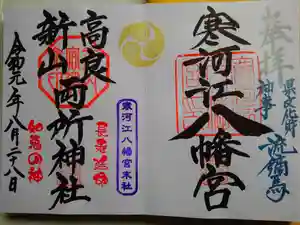 奉拝
県文化財
神事 流鏑馬
寒河江八幡宮
寒河江八幡宮末社
高良
新山 両所神社
長寿延命
如意の神
令和元年八月二十八日